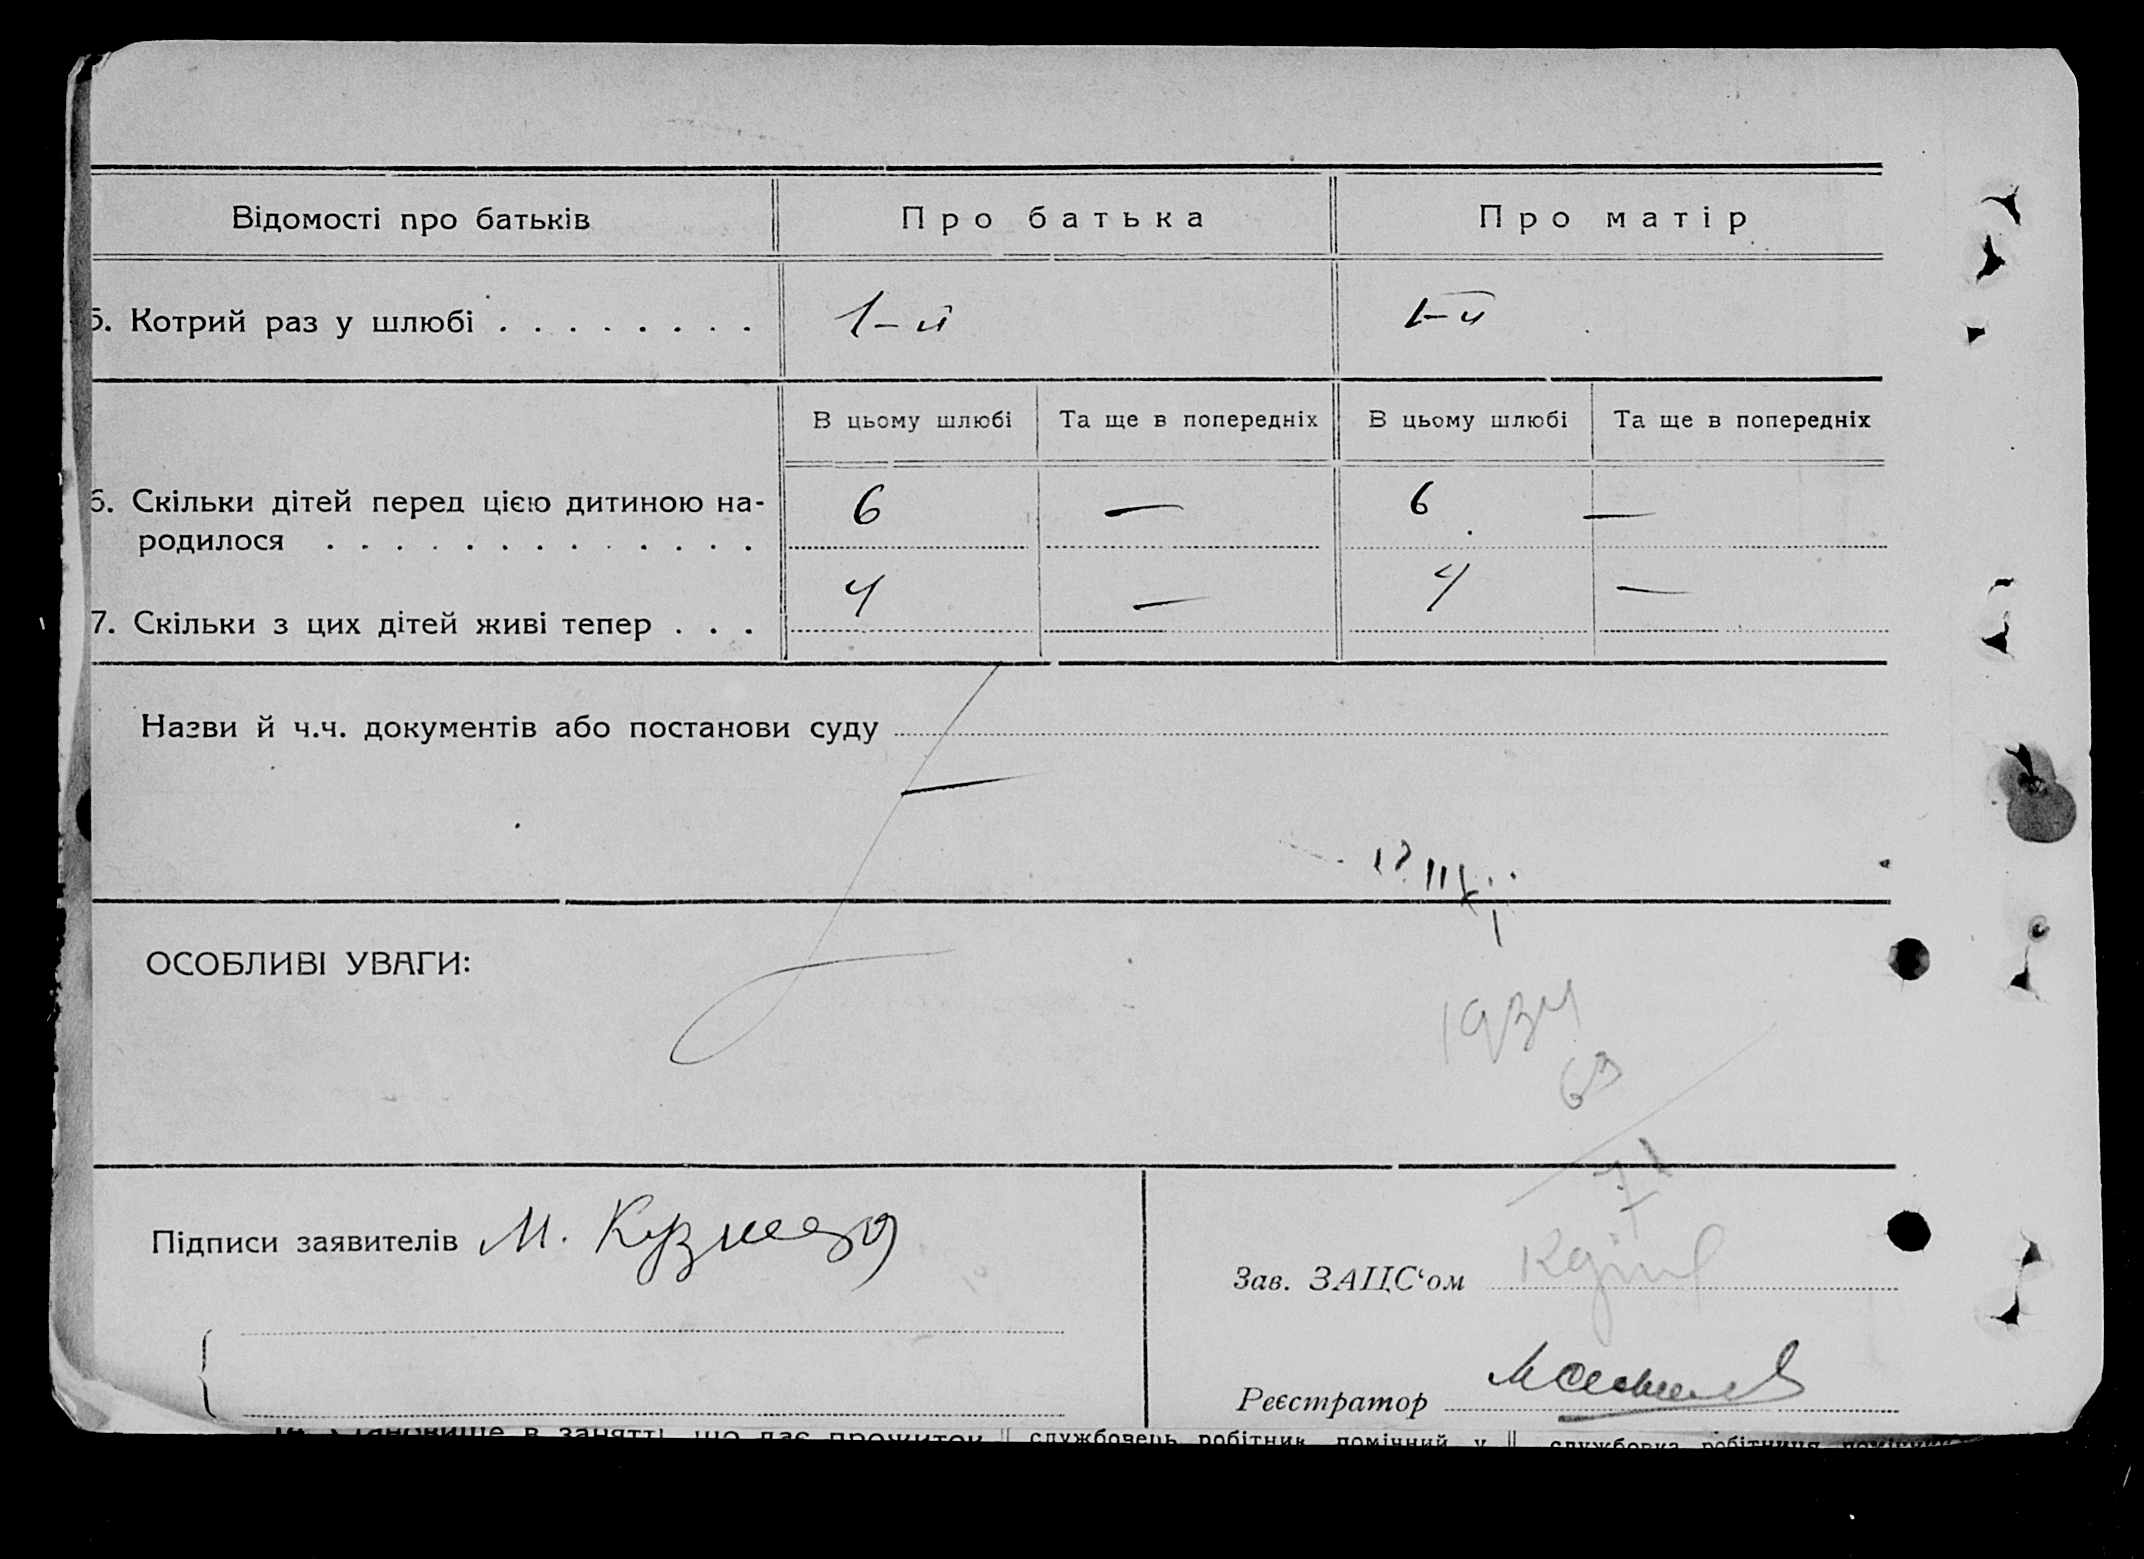 Відомості про батьків Про батька Про матір
5. Котрий раз у шлюбі . . . . . . . . 1-й 1-й
В цьому шлюбі Та ще в попередніх В цьому шлюбі Та ще в попередніх
6. Скільки дітей перед цією дитиною на- 6 — 6 —
родилося . . . . . . . . . . . . .
7. Скільки з цих дітей живі тепер . . . 4 — 4 —
Назви й ч.ч. документів або постанови суду
—
ОСОБЛИВІ УВАГИ:
1934
63
71
Підписи заявителів М. Кузнецо
Зав. ЗАЦС‘ом
Реєстратор
становище в занятті, що дає прожиток службовець робітник помічний у службовка робітниця